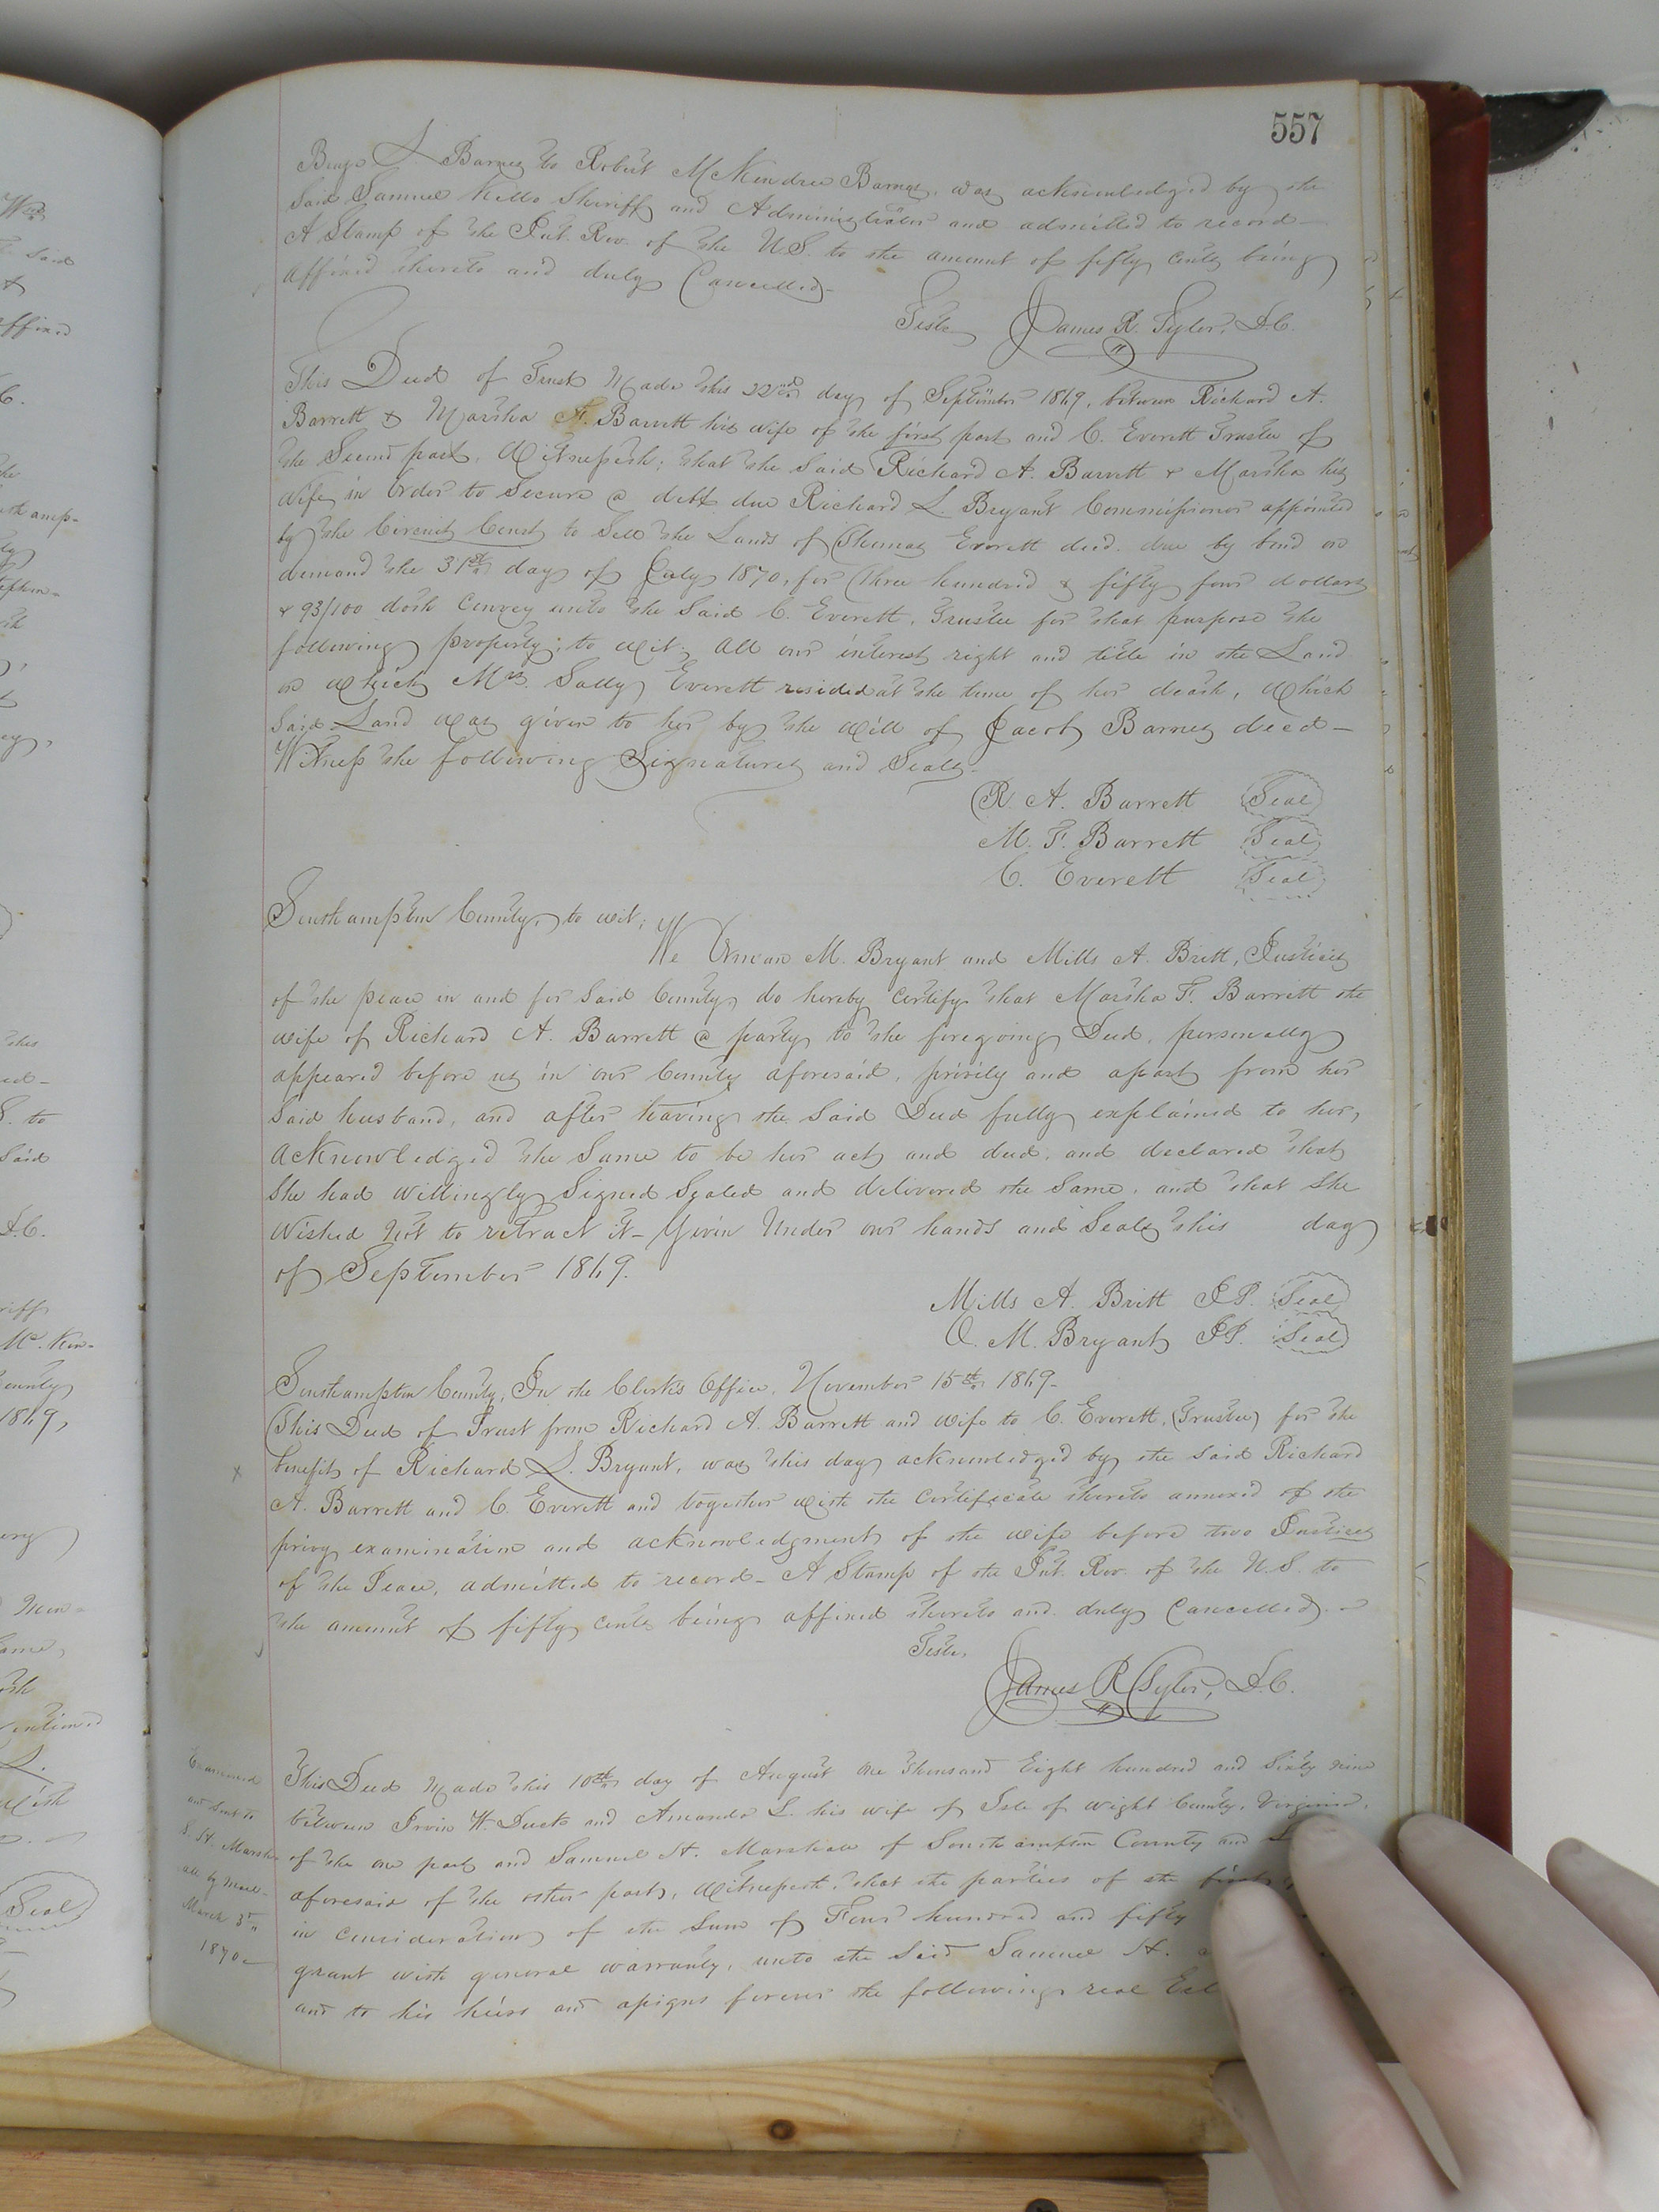 557
Benj L Barnes to Robert McKendree Barnes, was acknowledged by the
said Samuel Kello Sheriff and Administrator and admitted to record
A Stamp of the Int. Rev. of the U.S. to the amount of fifty cents being
affixed thereto and duly Cancelled-
Teste James R. Tyler, D.C.
This Deed of Trust Made this 22nd day of September 1869, between Richard A.
Barrett & Martha F. Barrett his wife of the first part and C. Everett Trustee of
the Second part, Witnesseth; that the Said Richard A. Barrett & Martha his
Wife in Order to Secure a debt due Richard L. Bryant Commissioner appointed
by the Circuit Court to Sell the Lands of Thomas Everett decd. due by bond on
demand the 31st day of July 1870, for Three hundred & fifty four dollars
& 93/100 doth Convey unto the Said C. Everett, Trustee for that purpose the
following property; to wit; All our interest right and title in the Land
on which Mrs. Sally Everett resided at the time of her death, Which
Said Land was given to her by the will of Jacob Barnes decd-
Witness the following Signatures and Seals-
R. A. Barrett Seal
M. F. Barrett Seal
C. Everett Seal
Southampton County, to wit;
We Orman M. Bryant and Mills A. Britt, Justices
of the peace in and for Said County, do hereby Certify that Martha F. Barrett the
wife of Richard A. Barrett a party to the foregoing Deed, personally
appeared before us in our County aforesaid, privily and apart from her
Said husband, and after having the Said Deed fully explained to her,
acknowledged the Same to be her act and deed, and declared that
She had willingly Signed Sealed and delivered the Same, and that She
Wished not to retract it- Given Under our hands and Seals this day
of September 1869.
Mills A. Britt J.P. Seal
O. M. Bryant J.P. Seal
Southampton County, In the Clerk's Office, November 15th 1869-
This Deed of Trust from Richard A. Barrett and wife to C. Everett, (Trustee) for the
benefit of Richard L. Bryant, was this day acknowledged by the said Richard
A. Barrett and C. Everett and together with the Certificate thereto annexed of the
privy examination and acknowledgment of the wife before two Justices
of the Peace, admitted to record- A Stamp of the Int. Rev. of the U.S. to
the amount of fifty cents being affixed thereto and duly Cancelled.-
Teste,
James R Tyler, D.C.
Examined
and Sent to
S. H. Marsh-
all by Mail-
March 3rd
1870-
This Deed Made this 10th day of August One Thousand Eight hundred and Sixty nine
between Irvin W. Duck and Amanda L. his wife of Isle of Wight County, Virginia,
of the one part and Samuel H. Marshall of Southampton County and
aforesaid of the other part, Witnesseth, that the parties of the first
in consideration of the Sum of Four hundred and fifty
grant with general warranty, unto the Said Samuel H.
and to his heirs and assigns forever the following real Est